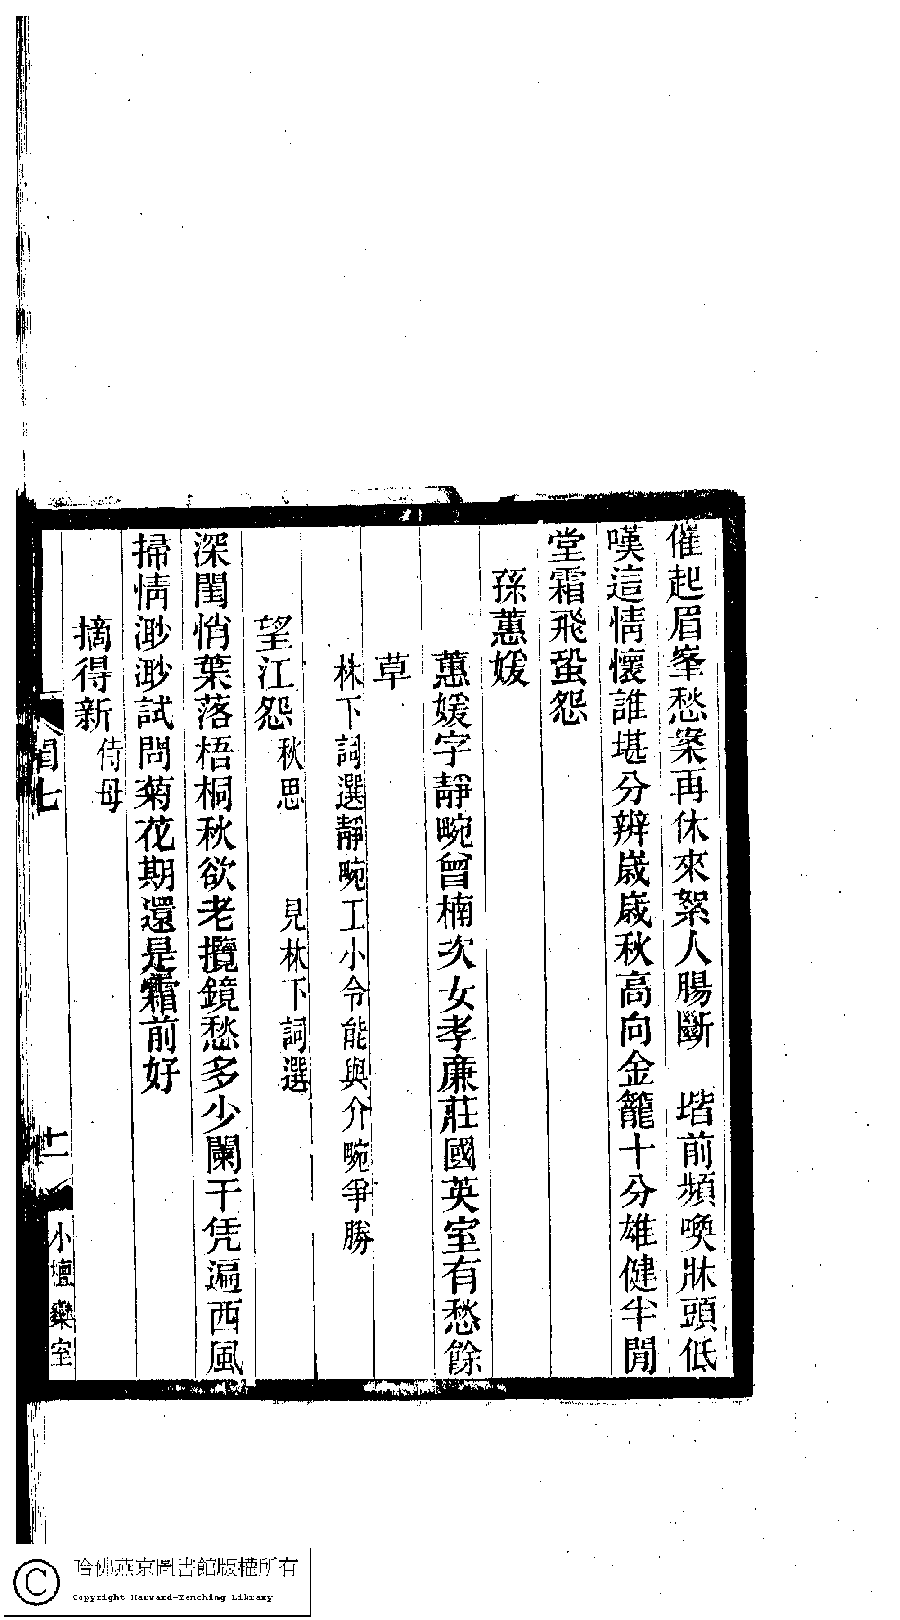 催起眉峯愁案再休來絮人腸斷　堦前頻喚牀頭低
嘆這情懷誰堪分辨歲歲秋高向金籠十分雄健半閒
堂霜飛蛩怨
孫蕙媛
蕙媛字靜畹曾楠次女孝廉莊國英室有愁餘
草
林下詞選靜畹工小令能與介畹爭勝
望江怨 秋思　見林下詞選
深閨悄葉落梧桐秋欲老攬鏡愁多少闌干凭遍西風
掃情渺渺試問菊花期還是霜前好
摘得新 侍母
七
十一
小檀欒室
哈佛燕京圖書館版權所有
Copyright Harvard-Yenching Library